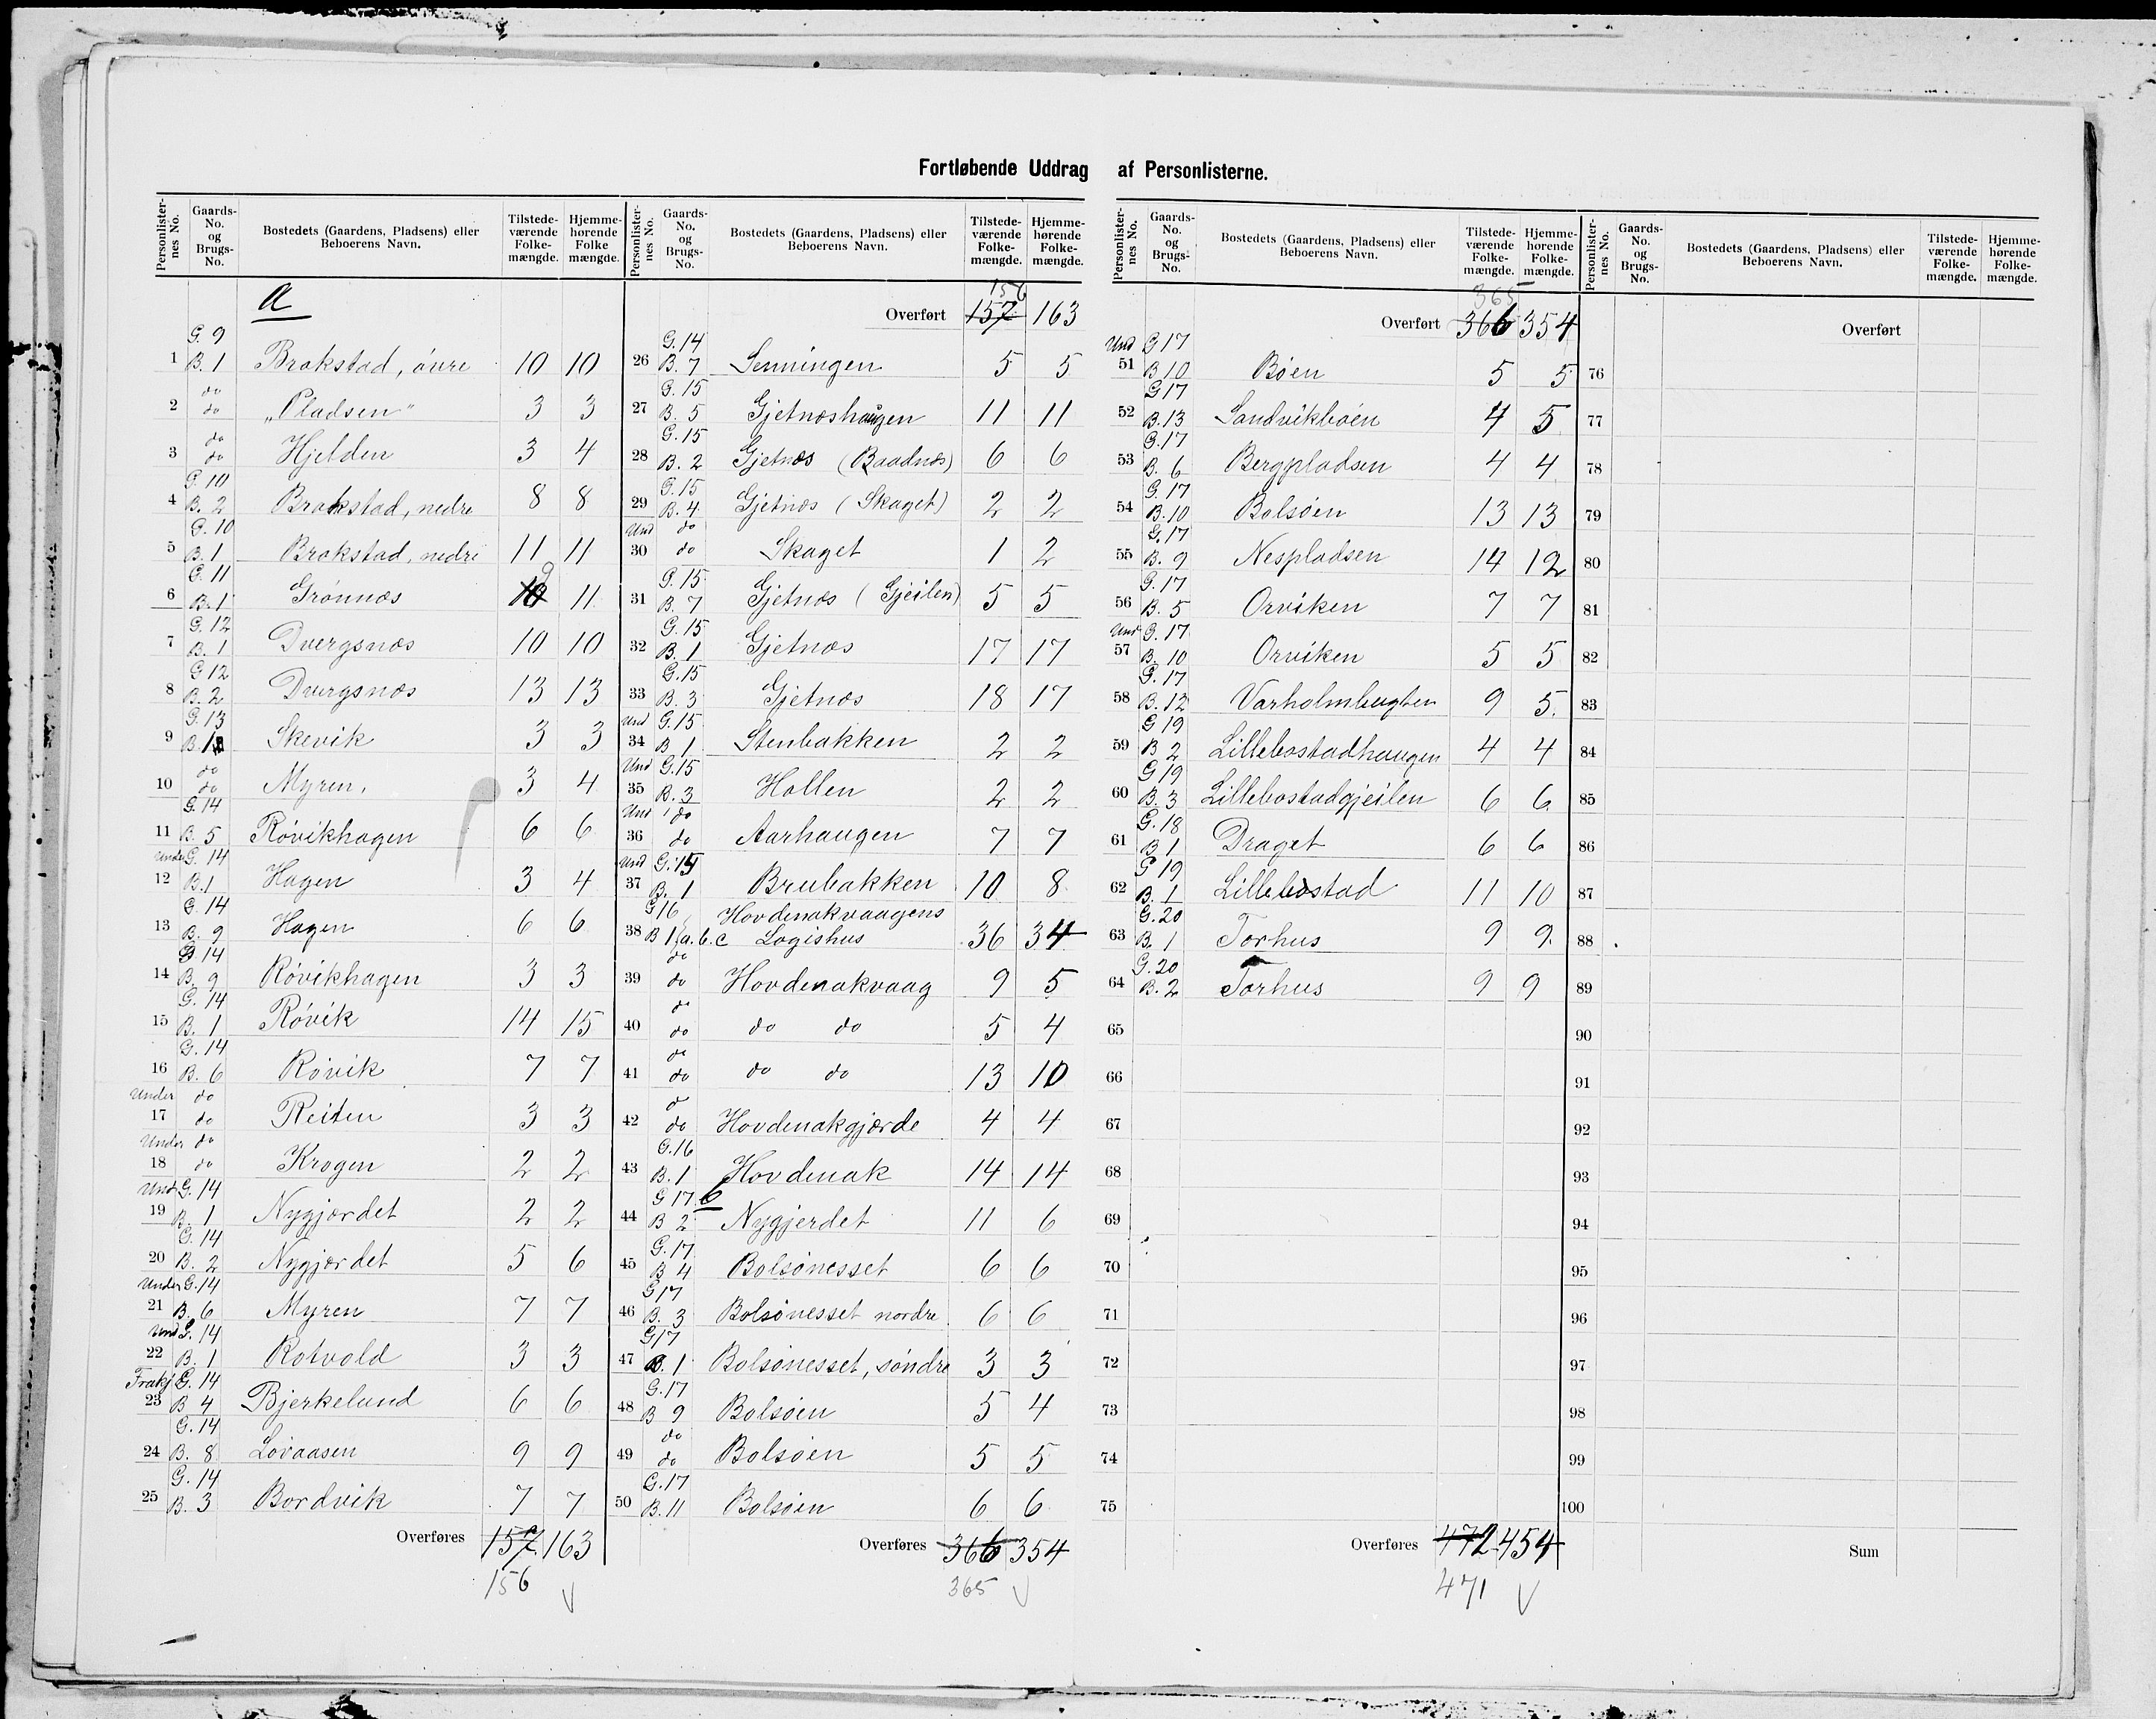 Fortløbende Uddrag af Personlisterne.
Personlisternes No. | Gaards-No. og Brugs-No. | Bostedets (Gaardens, Pladsens) eller Beboerens Navn. | Tilstedeværende Folkemængde. | Hjemmehørende Folkemængde.
a
1 G. 9 B. 1 Brakstad, øvre 10 10
2 do do "Pladsen" 3 3
3 do do Hjelden 3 4
4 G. 10 B. 2 Brakstad, nedre 8 8
5 G. 10 B. 1 Brakstad, nedre 11 11
6 G. 11 B. 1 Grønnæs 10 9 11
7 G. 12 B. 1 Dvergsnæs 10 10
8 G 12 B. 2 Dvergsnæs 13 13
9 G. 13 B. 1 Skevik 3 3
10 do do Myren, 3 4
11 G. 14 B. 5 Røvikhagen 6 6
12 Under G. 14 B. 1 Hagen 3 4
13 G. 14 B. 9 Hagen 6 6
14 G. 14 B. 9 Røvikhagen 3 3
15 G. 14 B. 1 Røvik 14 15
16 G. 14 B. 6 Røvik 7 7
17 Under do do Reiten 3 3
18 Under do do Krogen 2 2
19 Und. G. 14 B. 1 Nygjærdet 2 2
20 G. 14 B. 2 Nygjærdet 5 6
21 Under G. 14 B. 6 Myren 7 7
22 Und G. 14 B. 1 Rotvold 3 3
23 Frakj G. 14 B 4 Bjerkelund 6 6
24 G. 14 B. 8 Løvaasen 9 9
25 G. 14 B. 3 Bordvik 7 7
Overføres 157 163
156 V
Personlisternes No. | Gaards-No. og Brugs-No. | Bostedets (Gaardens, Pladsens) eller Beboerens Navn. | Tilstedeværende Folkemængde. | Hjemmehørende Folkemængde.
156
Overført 157 163
26 G. 14 B. 7 Senningen 5 5
27 G. 15 B. 5 Gjetnæshaugen 11 11
28 G. 15 B. 2 Gjetnæs (Baadnæs) 6 6
29 G. 15 B. 4 Gjetnæs (Skaget) 2 2
30 Und do do Skaget 1 2
31 G. 15 B. 7 Gjetnæs (Gjeilen) 5 5
32 G. 15 B. 1 Gjetnæs 17 17
33 G. 15 B. 3 Gjetnæs 18 17
34 Und G. 15 B. 1 Stenbakken 2 2
35 Und G. 15 B. 3 Hollen 2 2
36 Und do do Aarhaugen 7 7
37 Und G. 15 B. 1 Brubakken 10 8
38 G 16 B 1, a. b. c Hovdenakvaagens Logishus 36 34
39 do do Hovdenakvaag 9 5
40 do do do do 5 4
41 do do do do 13 10
42 do do Hovdenakgjærde 4 4
43 G. 16 B. 1 Hovdenak 14 14
b
44 G 17 B 2 Nygjerdet 11 6
45 G. 17 B 4 Bolsønesset 6 6
46 G 17 B. 3 Bolsønesset nordre 6 6
47 G 17 B. 1 Bolsønesset, søndre 3 3
48 G. 17 B 9 Bolsøen 5 4
49 do do Bolsøen 5 5
50 G. 17 B. 11 Bolsøen 6 6
Overføres 366 354
365 V
Personlisternes No. | Gaards-No. og Brugs-No. | Bostedets (Gaardens, Pladsens) eller Beboerens Navn. | Tilstedeværende Folkemængde. | Hjemmehørende Folkemængde.
365
Overført 366 354
51 Und G 17 B 10 Bøen 5 5
52 G 17 B. 13 Sandvikbøen 4 5
53 G. 17 B. 6 Bergpladsen 4 4
54 G. 17 B. 10 Bolsøen 13 13
55 G. 17 B. 9 Nespladsen 14 12
56 G. 17 B. 5 Orviken 7 7
57 Und G. 17 B. 10 Orviken 5 5
58 G. 17 B. 12 Varholmbugten 9 5.
59 G 19 B 2 Lillebostadhaugen 4 4
60 G 19 B. 3 Lillebostadgjeilen 6 6
61 G. 18 B 1 Draget 6 6
62 G 19 B. 1 Lillebostad 11 10
63 G. 20 B. 1 Torhus 9 9.
64 G. 20 B. 2 Torhus 9 9
65
66
67
68
69
70
71
72
73
74
75
Overføres 472 454
471 V
Personlisternes No. | Gaards-No. og Brugs-No. | Bostedets (Gaardens, Pladsens) eller Beboerens Navn. | Tilstedeværende Folkemængde. | Hjemmehørende Folkemængde.
Overført
76
77
78
79
80
81
82
83
84
85
86
87
88
89
90
91
92
93
94
95
96
97
98
99
100
Sum